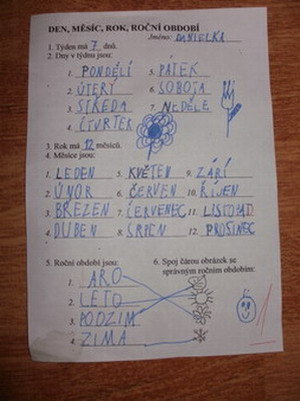 DEN, MĚSÍC, ROK, ROČNÍ OBDOBÍ
Jméno: DANIELKA
1. Týden má 7 dnů.
2. Dny v týdnu jsou:
1. PONDĚLÍ 5. PÁTEK
2. ÚTERÝ 6. SOBOTA
3. STŘEDA 7. NEDĚLE
4. ČTVRTEK
3. Rok má 12 měsíců.
4. Měsíce jsou:
1. LEDEN 5. KVĚTEN 9. ZÁŘÍ
2. ÚNOR 6. ČERVEN 10. ŘÍJEN
3. BŘEZEN 7. ČERVENEC 11. LISTOPAD
4. DUBEN 8. SRPEN 12. PROSINEC
5. Roční období jsou: 6. Spoj čárou obrázek se
správným ročním obdobím:
1. JARO
2. LÉTO
3. PODZIM
4. ZIMA